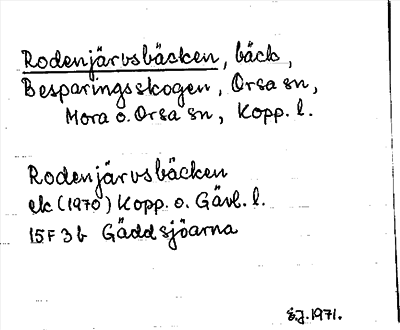 Rodenjärvsbäcken, bäck,
Besparingsskogen, Orsa sn,
Mora o. Orsa sn, Kopp. l.
Rodenjärvsbäcken
ek (1970) Kopp. o. Gävl. l.
15F 3b Gäddsjöarna
E.J. 1971.